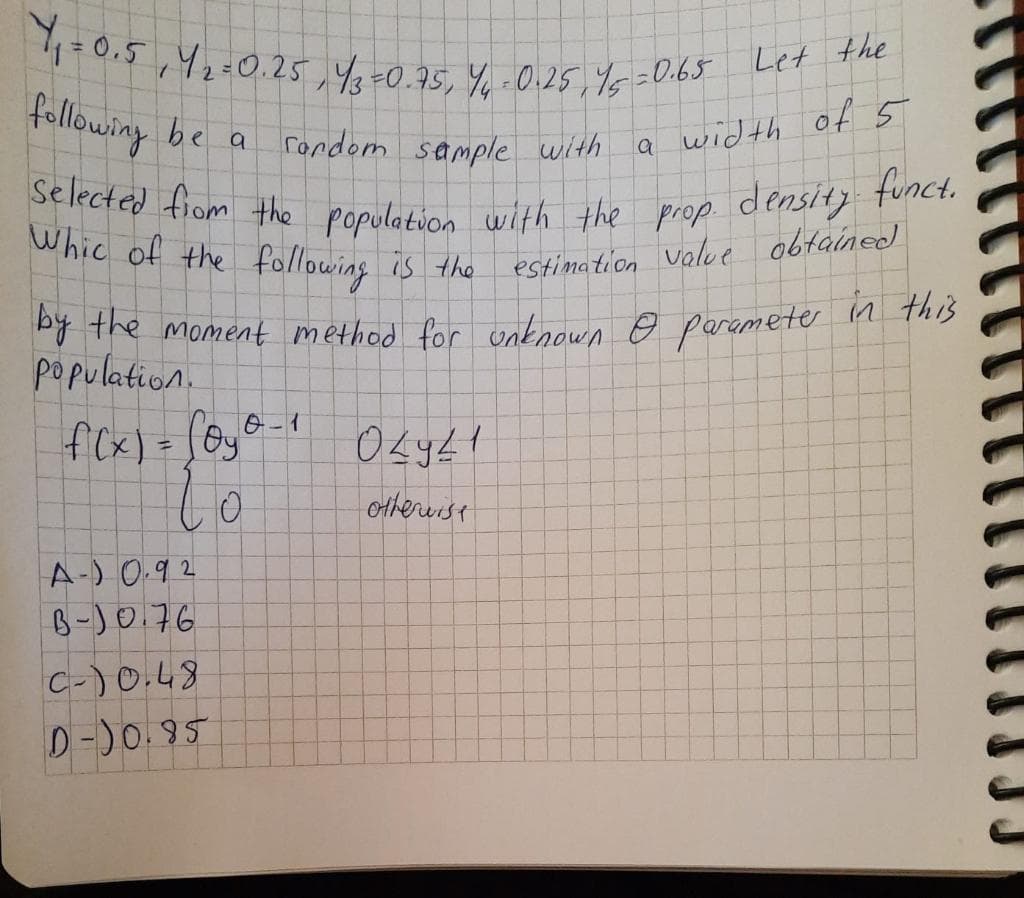 Y₁=0.5, Y₂=0.25, Y₃=0.75, Y₄=0.25, Y₅=0.65 Let the
following be a random sample with a width of 5
selected from the population with the prop. density funct.
Whic of the following is the estimation value obtained
by the moment method for unknown θ parameter in this
population.
f(x) = { θy^θ-1 0≤y≤1
0 otherwise
A-) 0.92
B-) 0.76
C-) 0.48
D-) 0.85